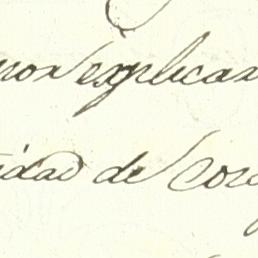 por explicar
idad de Cor